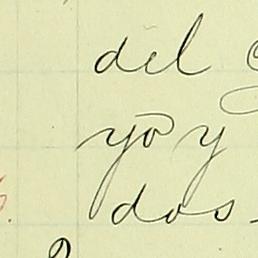 del
yo y
dos-